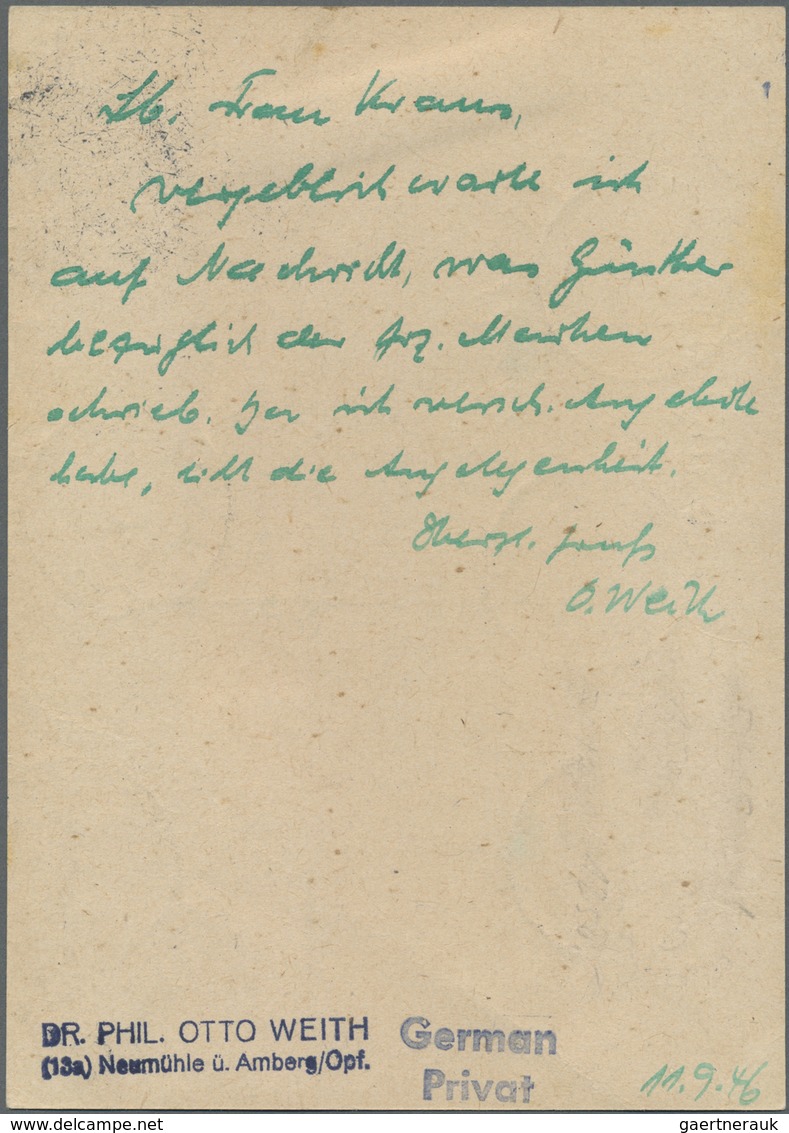 Lb. Frau Kraus,
vergeblich warte ich
auf Nachricht, was Günther
bezüglich der frz. Marken
schrieb. Da ich versch. Angebote
habe, eilt die Angelegenheit.
Herzl. Gruß
O. Weith
DR. PHIL. OTTO WEITH
(13a) Neumühle ü. Amberg/Opf.
German
Privat
11.9.46
gaertnerauk